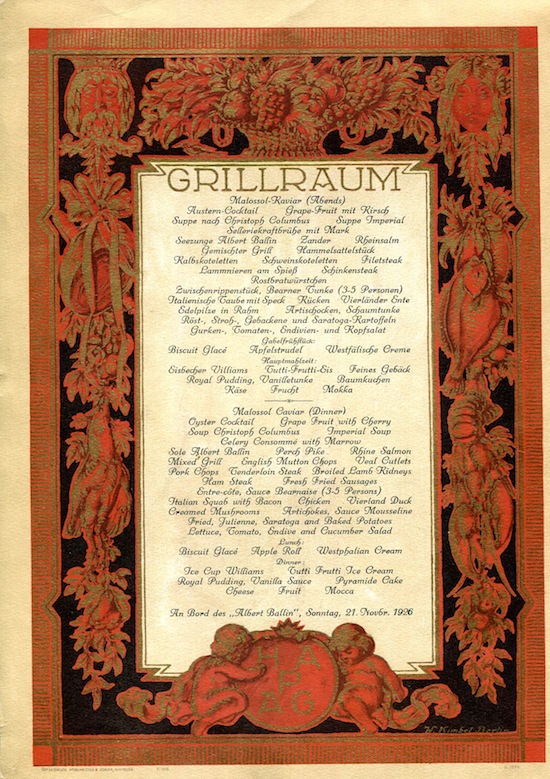 GRILLRAUM
Malossol-Kaviar (Abends)
Austern-Cocktail Grape-Fruit mit Kirsch
Suppe nach Christoph Columbus Suppe Imperial
Selleriekraftbrühe mit Mark
Seezunge Albert Ballin Zander Rheinsalm
Gemischter Grill Hammelsattelstück
Kalbskoteletten Schweinskoteletten Filetsteak
Lammnieren am Spieß Schinkensteak
Rostbratwürstchen
Zwischenrippenstück, Bearner Tunke (3-5 Personen)
Italienische Taube mit Speck Kücken Vierländer Ente
Edelpilze in Rahm Artischocken, Schaumtunke
Röst-, Stroh-, Gebackene und Saratoga-Kartoffeln
Gurken-, Tomaten-, Endivien- und Kopfsalat
Gabelfrühstück:
Biscuit Glacé Apfelstrudel Westfälische Creme
Hauptmahlzeit:
Eisbecher Williams Tutti-Frutti-Eis Feines Gebäck
Royal Pudding, Vanilletunke Baumkuchen
Käse Frucht Mokka
Malossol Caviar (Dinner)
Oyster Cocktail Grape Fruit with Cherry
Soup Christoph Columbus Imperial Soup
Celery Consommé with Marrow
Sole Albert Ballin Perch Pike Rhine Salmon
Mixed Grill English Mutton Chops Veal Cutlets
Pork Chops Tenderloin Steak Broiled Lamb Kidneys
Ham Steak Fresh Fried Sausages
Entre-côte, Sauce Bearnaise (3-5 Persons)
Italian Squab with Bacon Chicken Vierland Duck
Creamed Mushrooms Artichokes, Sauce Mousseline
Fried, Julienne, Saratoga and Baked Potatoes
Lettuce, Tomato, Endive and Cucumber Salad
Lunch:
Biscuit Glacé Apple Roll Westphalian Cream
Dinner:
Ice Cup Williams Tutti Frutti Ice Cream
Royal Pudding, Vanilla Sauce Pyramide Cake
Cheese Fruit Mocca
An Bord des „Albert Ballin", Sonntag, 21. Novbr. 1926
HA
PA
G
W. Kimbel-Berlin